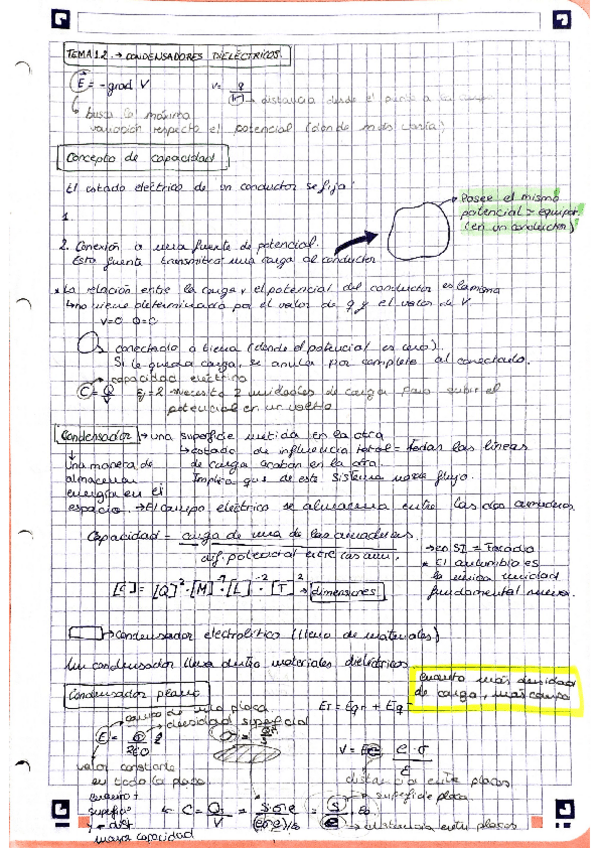 TEMA 12. → CONDENSADORES DIELÉCTRICOS.
E = -grad V V= q/r → distancia desde el punto a la carga
busca la máxima
variación respecto el potencial (donde más varía)
Concepto de capacidad
El estado eléctrico de un conductor se fija:
1.
Posee el mismo
potencial > equipot.
(en un conductor)
2. Conexión a una fuente de potencial.
Esta fuente transmitirá una carga al conductor
* La relación entre la carga y el potencial del conductor es la misma
no viene determinada por el valor de q y el valor de V
V=0 Q=0
conectado a tierra (donde el potencial es cero).
Si le queda carga, se anula por completo al conectarlo.
→ capacidad eléctrica
C = Q/V necesito 2 unidades de carga para subir el
potencial en un voltio
Condensador → una superficie metida en la otra
→ estado de influencia total = todas las líneas
Una manera de de carga acaban en la otra.
almacenar Implica que de este sistema no sale flujo.
energía en el
espacio. → El campo eléctrico se almacena entre las dos armaduras
Capacidad = carga de una de las armaduras
dif. potencial entre las arm.
→ en SI = Faradio
* El autumbio es
la única unidad
fundamental nueva.
[C] = [Q]² · [M]⁻¹ · [L]⁻² · [T]² → dimensiones.
→ Condensador electrolítico (lleno de materiales)
Un condensador lleva dentro materiales dieléctricos
cuanto más densidad
de carga, más campo
Condensador plano
ET = Eq+ + Eq-
→ campo de una placa.
→ densidad superficial
V = Ee = e·σ/ε
valor constante
en toda la placa.
distancia entre placas
superficie placa.
cuanto +
superficie
y - dist
mayor capacidad
← C = Q/V
→ distancia entre placas